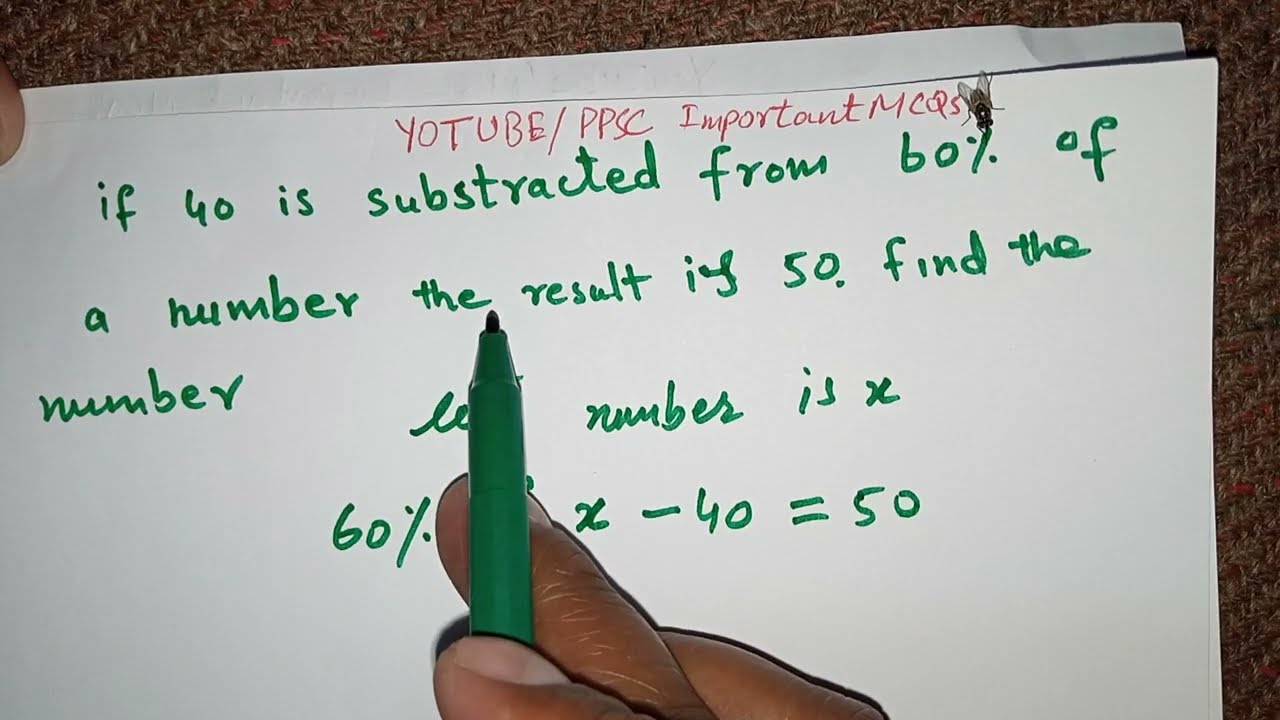 YOTUBE/PPSC Important MCQs
if 40 is substracted from 60% of
a number the result is 50. find the
number number is x
60% x - 40 = 50